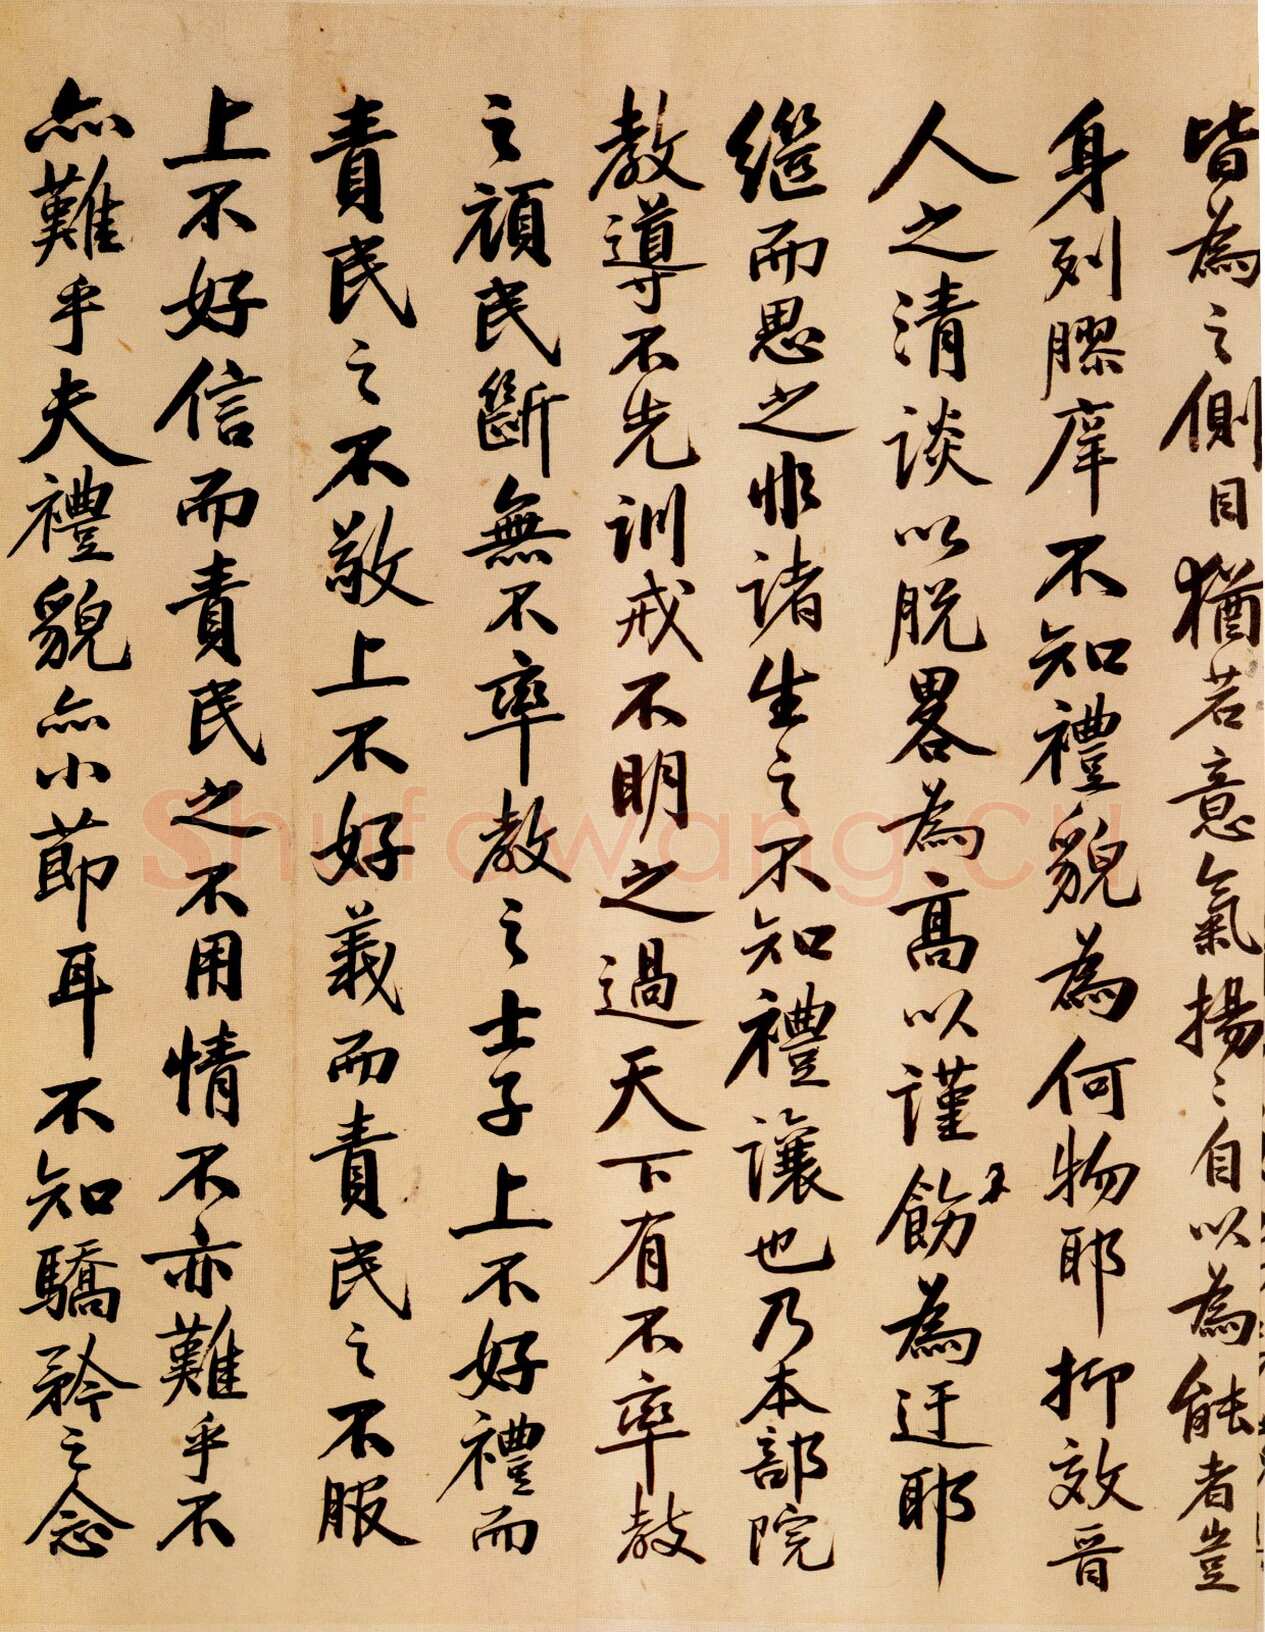 皆為之側目猶若意氣揚〻自以為能者豈
身列膠庠不知禮貌為何物耶抑效晉
人之清談以脫畧為高以謹飭為迂耶
繼而思之非諸生之不知禮讓也乃本部院
教導不先訓戒不明之過天下有不率教
之頑民斷無不率教之士子上不好禮而
責民之不敬上不好義而責民之不服
上不好信而責民之不用情不亦難乎不
亦難乎夫禮貌亦小節耳不知驕矜之念
Shufawang.cn